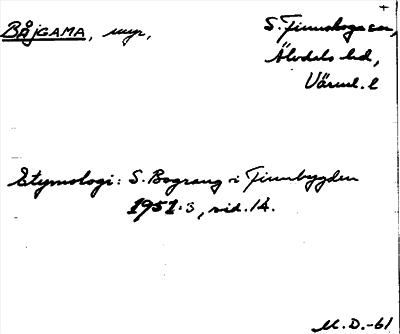 BÅJGAMA, myr,
S. Finnskoga sn,
Älvdals hd,
Värml. l
Etymologi: S. Bograng i Finnbygden
1951:3, sid. 14.
M.D.-61